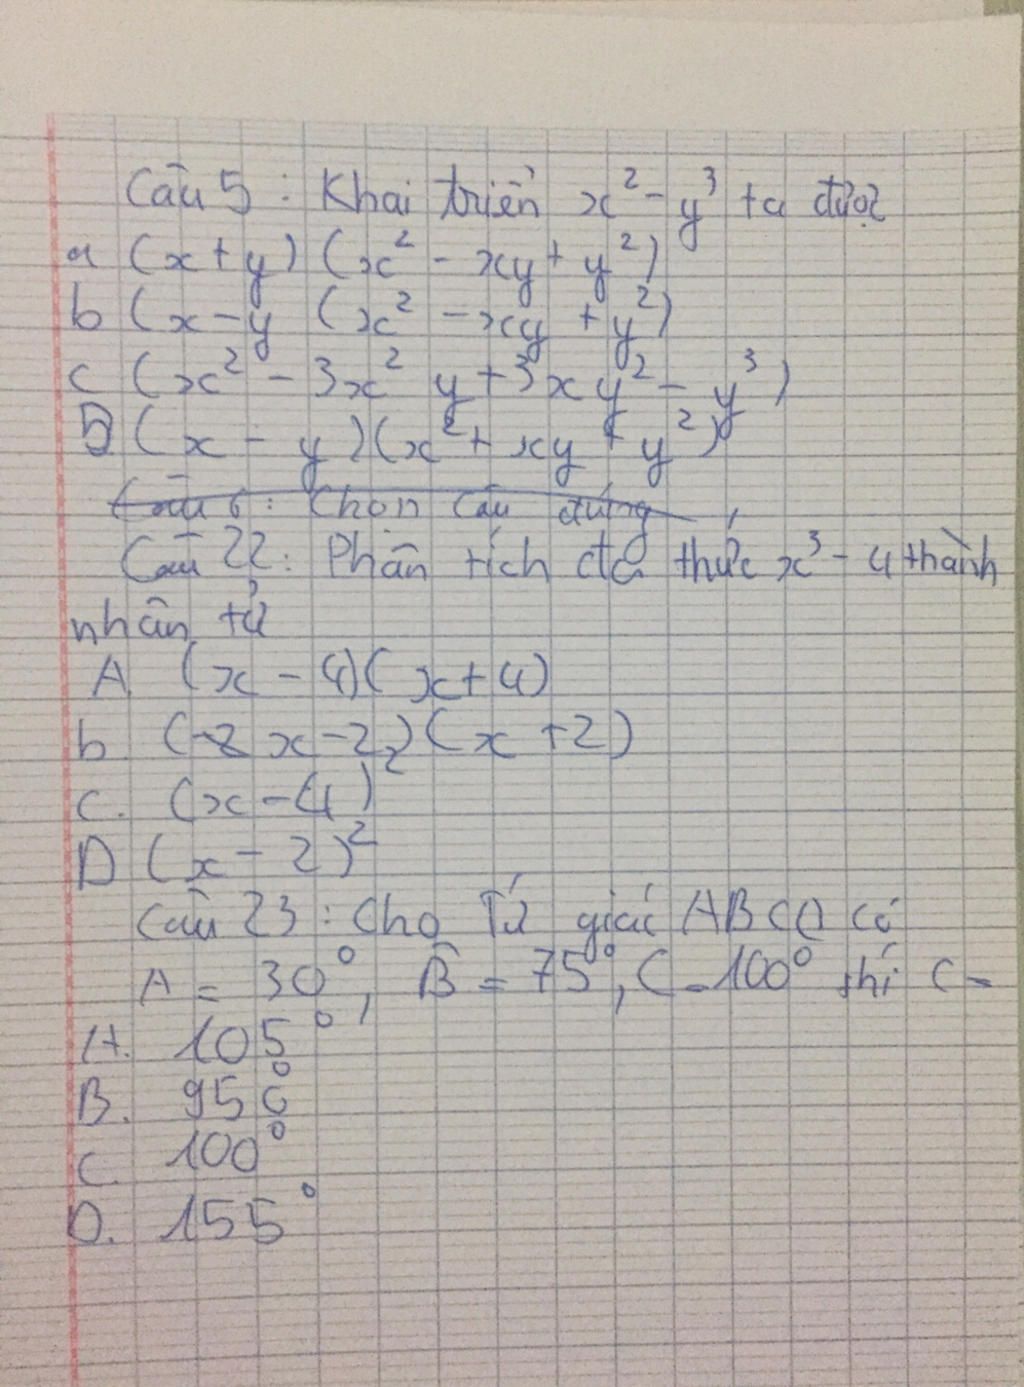 Câu 5 : Khai triển x² - y³ ta được
a (x + y) (x² - xy + y²)
b (x - y (x² - xy + y²)
c (x² - 3x² y + 3xy² - y³)
D (x - y)(x² + xy + y²)
Câu 6: Chọn câu đúng
Câu 22: Phân tích đa thức x³ - 4 thành
nhân tử
A (x - 4)(x + 4)
b (-2 x - 2)(x + 2)
c. (x - 4)²
D (x - 2)²
Câu 23 : Cho Tứ giác ABCD có
A = 30°, B̂ = 75°, C = 100° thì C =
A. 105°
B. 95°
C. 100°
D. 155°